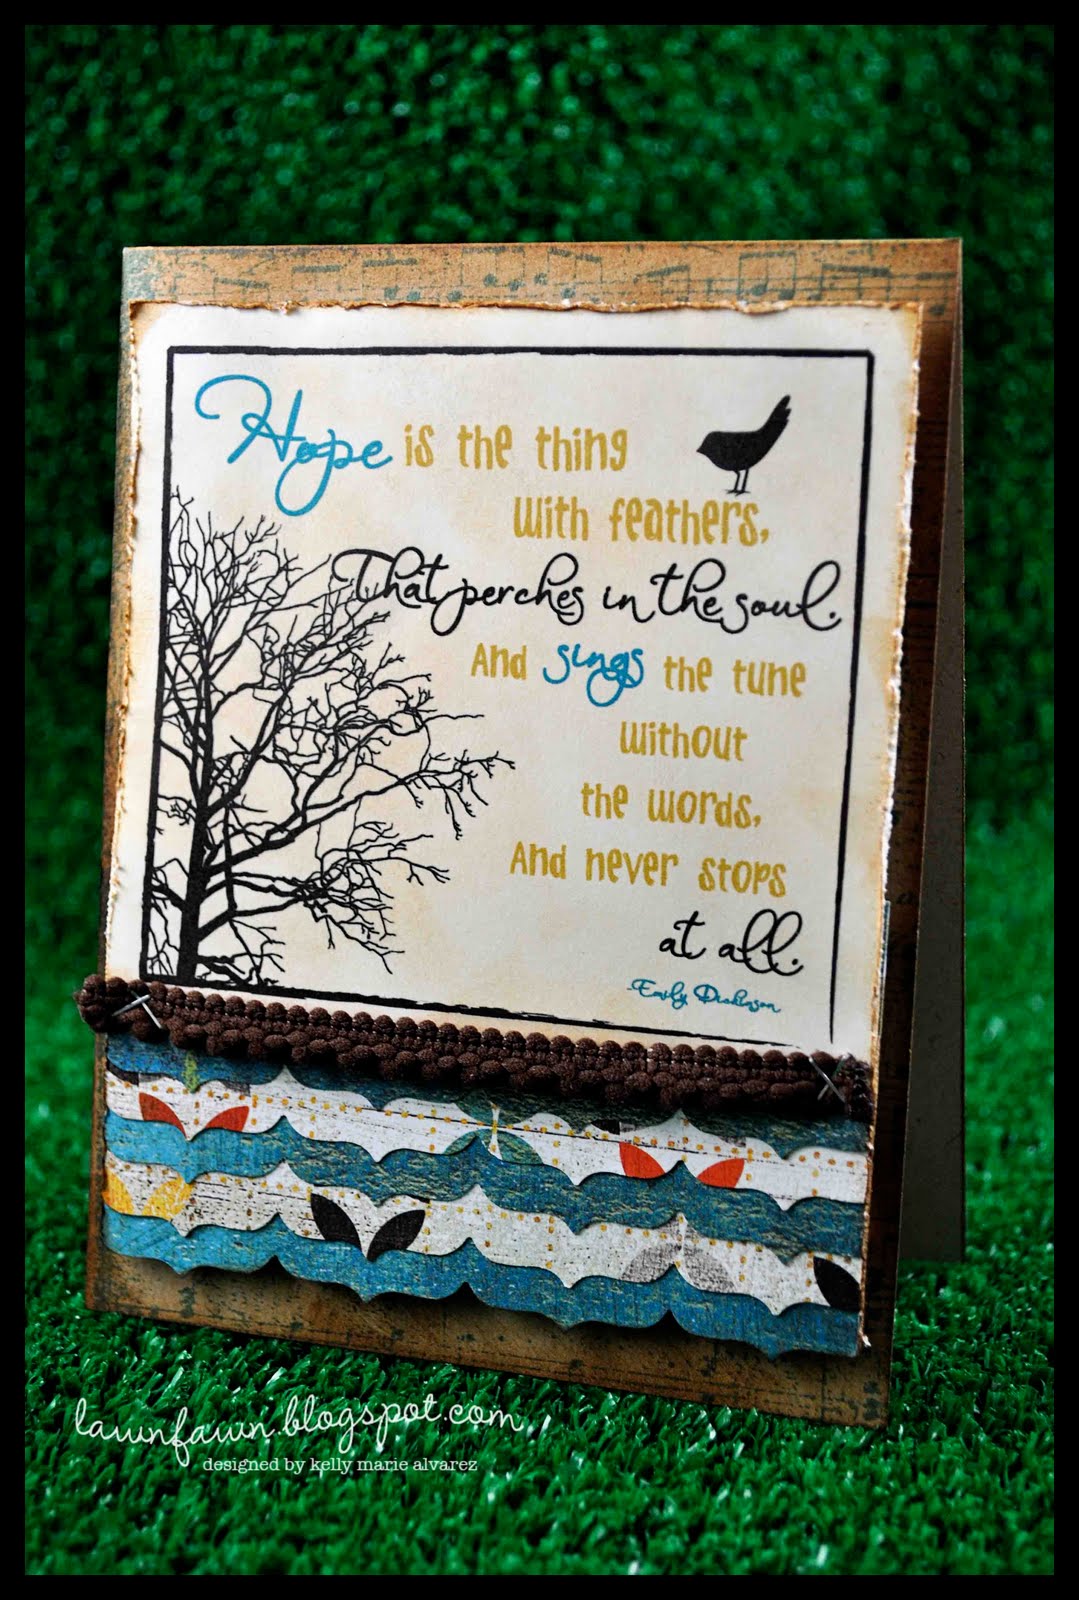 Hope is the thing
with feathers,
That perches in the soul.
And sings the tune
without
the words,
And never stops
at all.
-Emily Dickinson
lawnfawn.blogspot.com
designed by kelly marie alvarez